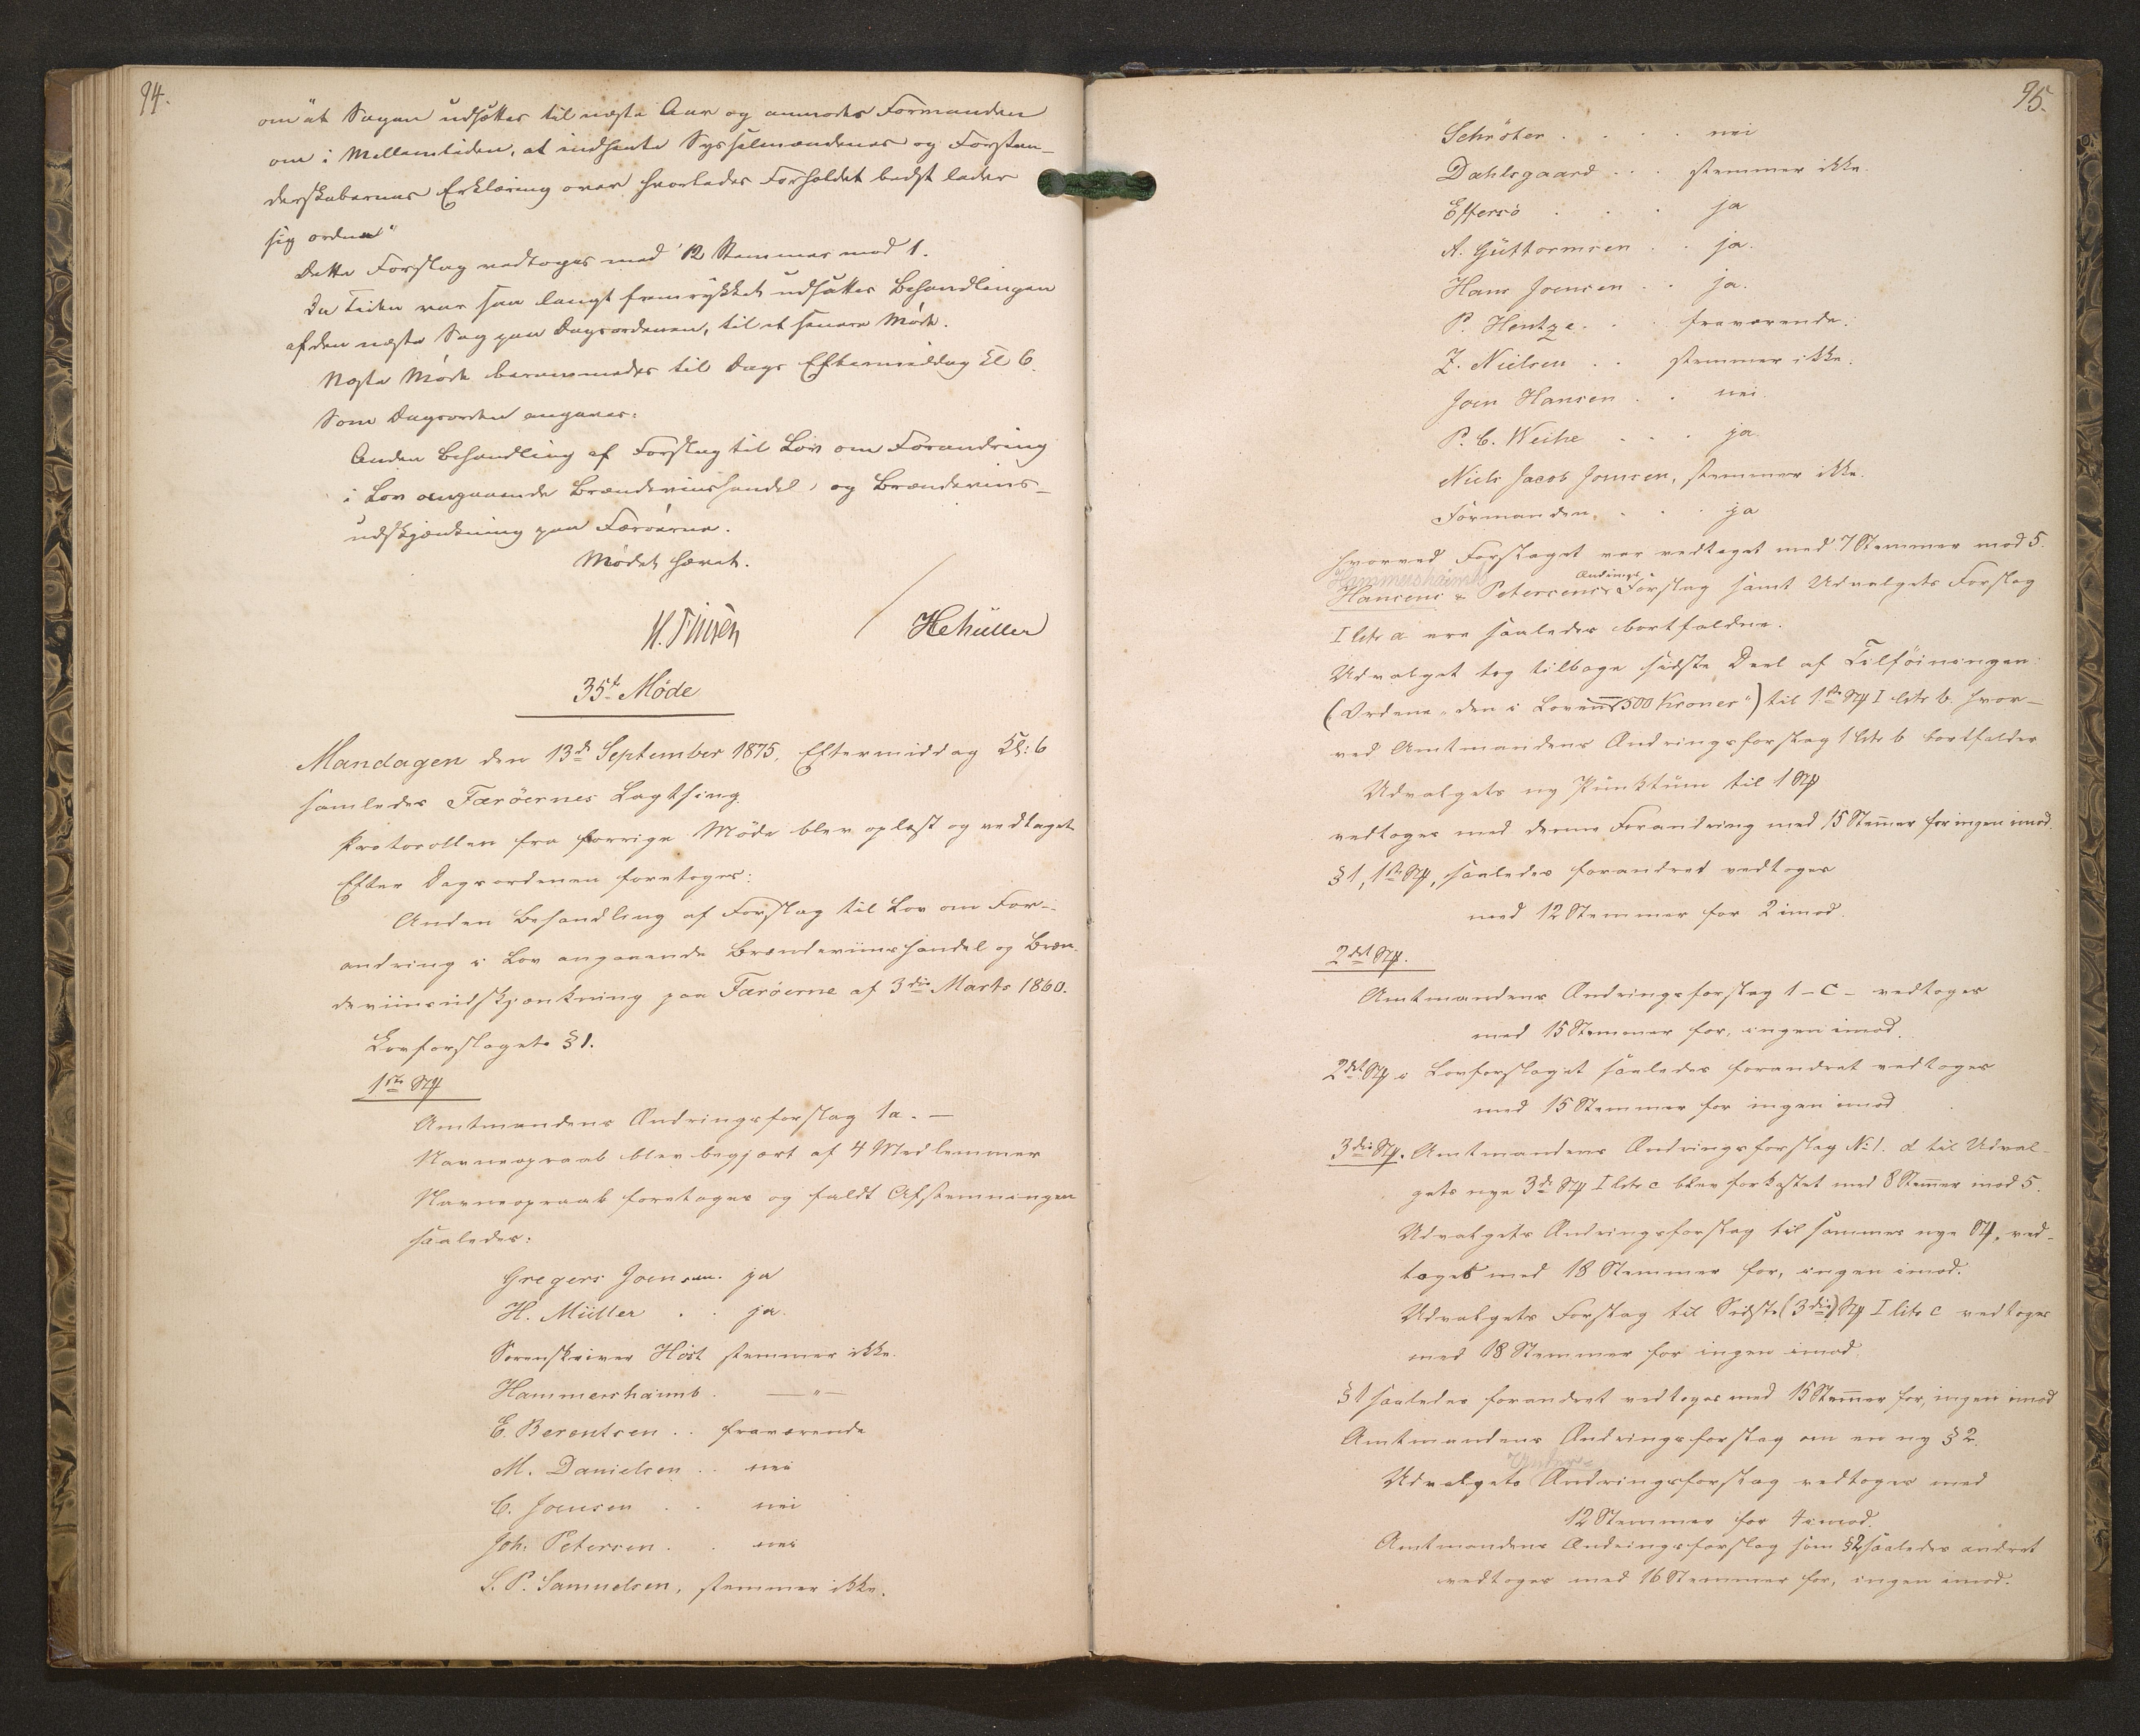 94.
om at Sagen udsættes til næste Aar og anmodes Formanden
om i Mellemtiden, at indhente Sysselmændenes og Forstan-
derskabernes Erklæring over hvorledes Forholdet bedst lader
sig ordne"
Dette Forslag vedtoges med 12 Stemmer mod 1.
Da Tiden var saa langt fremrykket udsattes Behandlingen
af den næste Sag paa Dagsordenen, til et senere Møde.
Næste Møde berammedes til Dags Eftermiddag Kl 6.
Som Dagsorden angaves:
Anden Behandling af Forslag til Lov om Forandring
i Lov angaaende Brændevinshandel, og Brændevins-
udskjænkning paa Færøerne.
Mødet hævet.
H. Finsen / HcMüller
35te Møde
Mandagen den 13de September 1875, Eftermiddag Kl: 6
samledes Færöernes Lagthing.
Protocollen fra forrige Møde blev oplæst og vedtaget
Efter Dagsordenen foretoges:
Anden Behandling af Forslag til Lov om For-
andring i Lov angaaende Brændeviinshandel og Bræn-
deviinsudskjænkning paa Færöerne af 3die Marts 1860.
Lovforslagets § 1.
1ste Stk
Amtmandens Ændringsforslag 1a. —
Navneopraab blev begjært af 4 Medlemmer
Navneopraab foretoges og faldt Afstemningen
saaledes:
Gregers Joensen. ja
H. Müller . . ja.
Sorenskriver Höst stemmer ikke.
Hammershaimb. — " —
E. Berentsen . . fraværende
M. Danielsen . . nei
C. Joensen . . nei
Joh: Petersen . . nei
S. P. Samuelsen, stemmer ikke.
95.
Schröter . . . . nei
Dahlsgaard . . . stemmer ikke.
Effersö . . . ja
A. Guttormsen . . ja.
Hans Joensen . . ja.
P. Hentze. . . fraværende.
Z. Nielsen . . stemmer ikke.
Joen Hansen . . nei.
P. C. Weihe . . . ja.
Niels Jacob Joensen, stemmer ikke.
Formanden. . . . ja
hvorved Forslaget var vedtaget med 7 Stemmer mod 5.
Hammershaimb
Ændrings-
Hansens & Petersens Forslag samt Udvalgets Forslag
I litr a ere saaledes bortfaldne.
Udvalget tog tilbage sidste Deel af Tilföiningen:
(Ordene „den i Loven 500 Kroner") til 1ste Stk I litr b. hvor-
ved Amtmandens Ændringsforslag 1 litr b bortfalder
Udvalgets ny Punktum til 1 Stk
vedtoges med denne Forandring med 15 Stemer for ingen imod.
§ 1, 1ste Stk, saaledes forandret vedtoges
med 12 Stemmer for 2 imod.
2det Stk.
Amtmandens Ændringsforslag 1 - c - vedtoges
med 15 Stemmer for, ingen imod.
2det Stk i Lovforslaget saaledes forandret vedtoges
med 15 Stemmer for ingen imod
3die Stk. Amtmandens Ændringsforslag No 1. d til Udval-
gets nye 3die Stk I litr c blev forkastet med 8 Stemer mod 5.
Udvalgets Ændringsforslag til sammes nye Stk, ved-
toges med 18 Stemmer for, ingen imod.
Udvalgets Forslag til Sidste (3die) Stk I litr c vedtoges
med 18 Stemmer for ingen imod
§ 1 saaledes forandret vedtoges med 15 Stemer for, ingen imod
Amtmandens Ændringsforslag om en ny § 2.
Udvalgets Ændringsforslag vedtoges med
12 Stemmer for 4 imod.
Amtmandens Ændringsforslag som § 2 saaledes ændret
vedtoges med 16 Stemmer for, ingen imod.